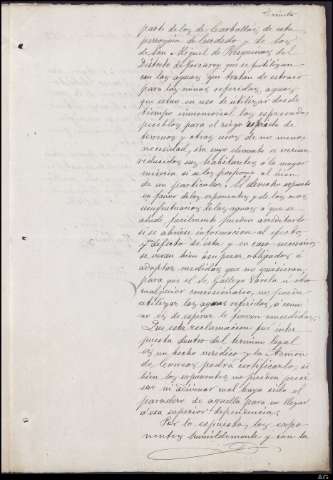 parte de los de Carballás, de esta
parroquia de Landedo, y de los
de San Miguel de Presqueiras del
Distrito de Forcarey, que se
ran las aguas que tratan de extraer
para las minas referidas, aguas
que estan en uso de utilizar desde
tiempo inmemorial los expresados
pueblos para el riego
terrenos y otros usos de no menos
necesidad, sin cuyo elemento se verian
reducidos sus habitantes a la mayor
miseria si a los propios
de un particular; El derecho expuesto
en favor de los exponentes y de los mas
usufructuarios de las aguas a que se
alude facilmente pueden acreditarlo
si se abriese informacion al efecto,
y a defecto de esta y en caso necesario
se verian bien a su pesar obligados a
adoptar medidas que no quisieran,
para que el Sr. Gallego Varela u otro
cualquier concesionario, no pueda
utilizar las aguas referidas, si como
no es de esperar le fueran concedidas.
Que esta reclamacion fue inter
puesta dentro del termino legal
es un hecho veridico y la Admon
de Correos podrá certificarlo, si
bien los exponentes no pueden preci
sar ni adivinar cual haya sido el
paradero de aquella para no llegar
a esa superior dependencia;
Por lo expuesto, los expo
nentes humildemente y con la